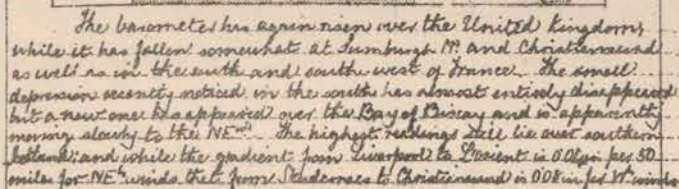 The barometer has again risen over the United Kingdom,
while it has fallen somewhat at Sumburgh Hd. and Christiansund
as well as in the south and south west of France. The small
depression recently noticed in the south has almost entirely disappeared
but a new one has appeared over the Bay of Biscay and is apparently
moving slowly to the NEwd. The highest readings still lie over southern
Scotland; and while the gradient from Liverpool to Lorient is 0.06 in per 50
miles for NEly winds that from to Christiansund is 0.08 in per Wly winds